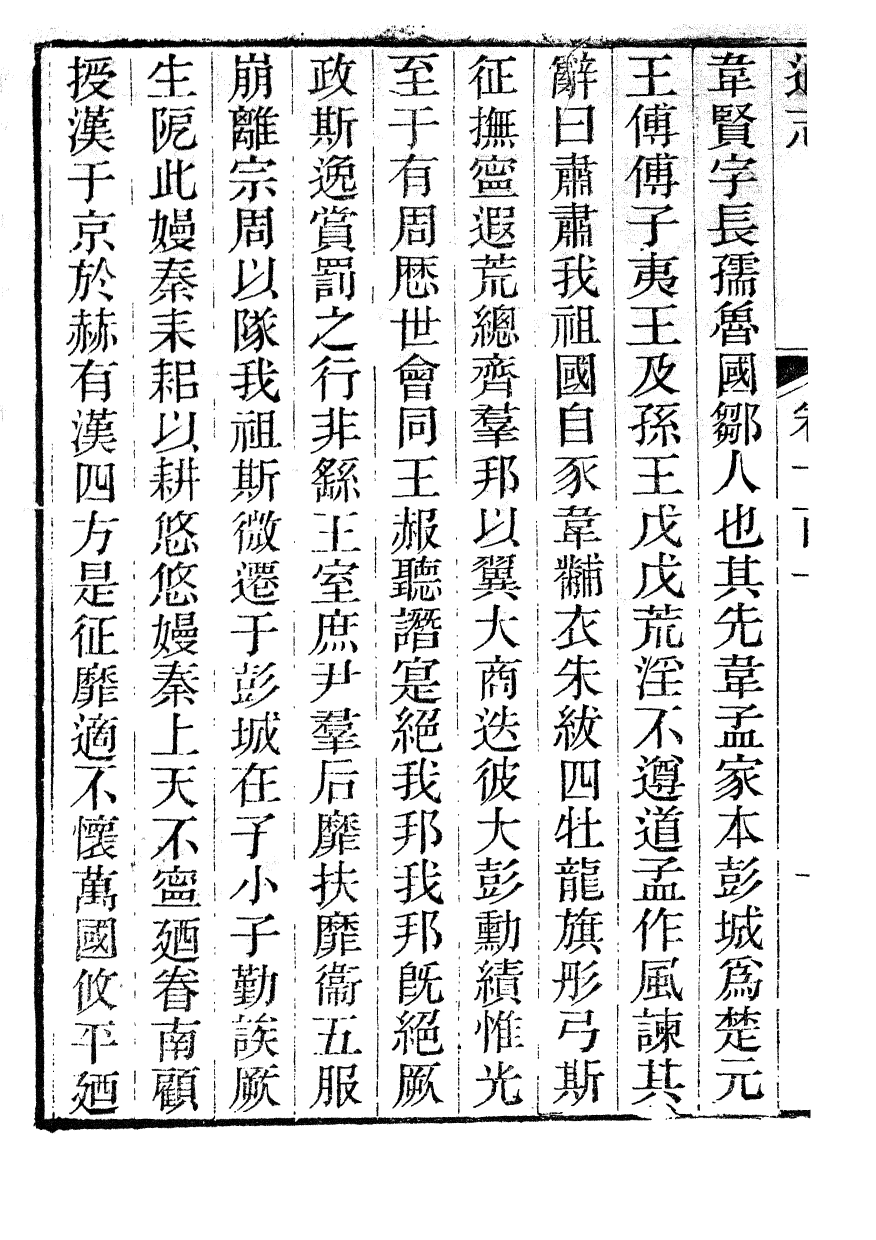 通志
韋賢字長孺魯國鄒人也其先韋孟家本彭城爲楚元
王傅傅子夷王及孫王戊戊荒淫不遵道孟作風諫其
辭曰肅肅我祖國自豕韋黼衣朱紱四牡龍旗彤弓斯
征撫寧遐荒總齊羣邦以翼大商迭彼大彭勳績惟光
至于有周歷世會同王赧聽譖寔絕我邦我邦旣絕厥
政斯逸賞罰之行非繇王室庶尹羣后靡扶靡衞五服
崩離宗周以隊我祖斯微遷于彭城在予小子勤誒厥
生阸此嫚秦耒耜以耕悠悠嫚秦上天不寧廼眷南顧
授漢于京於赫有漢四方是征靡適不懷萬國攸平廼